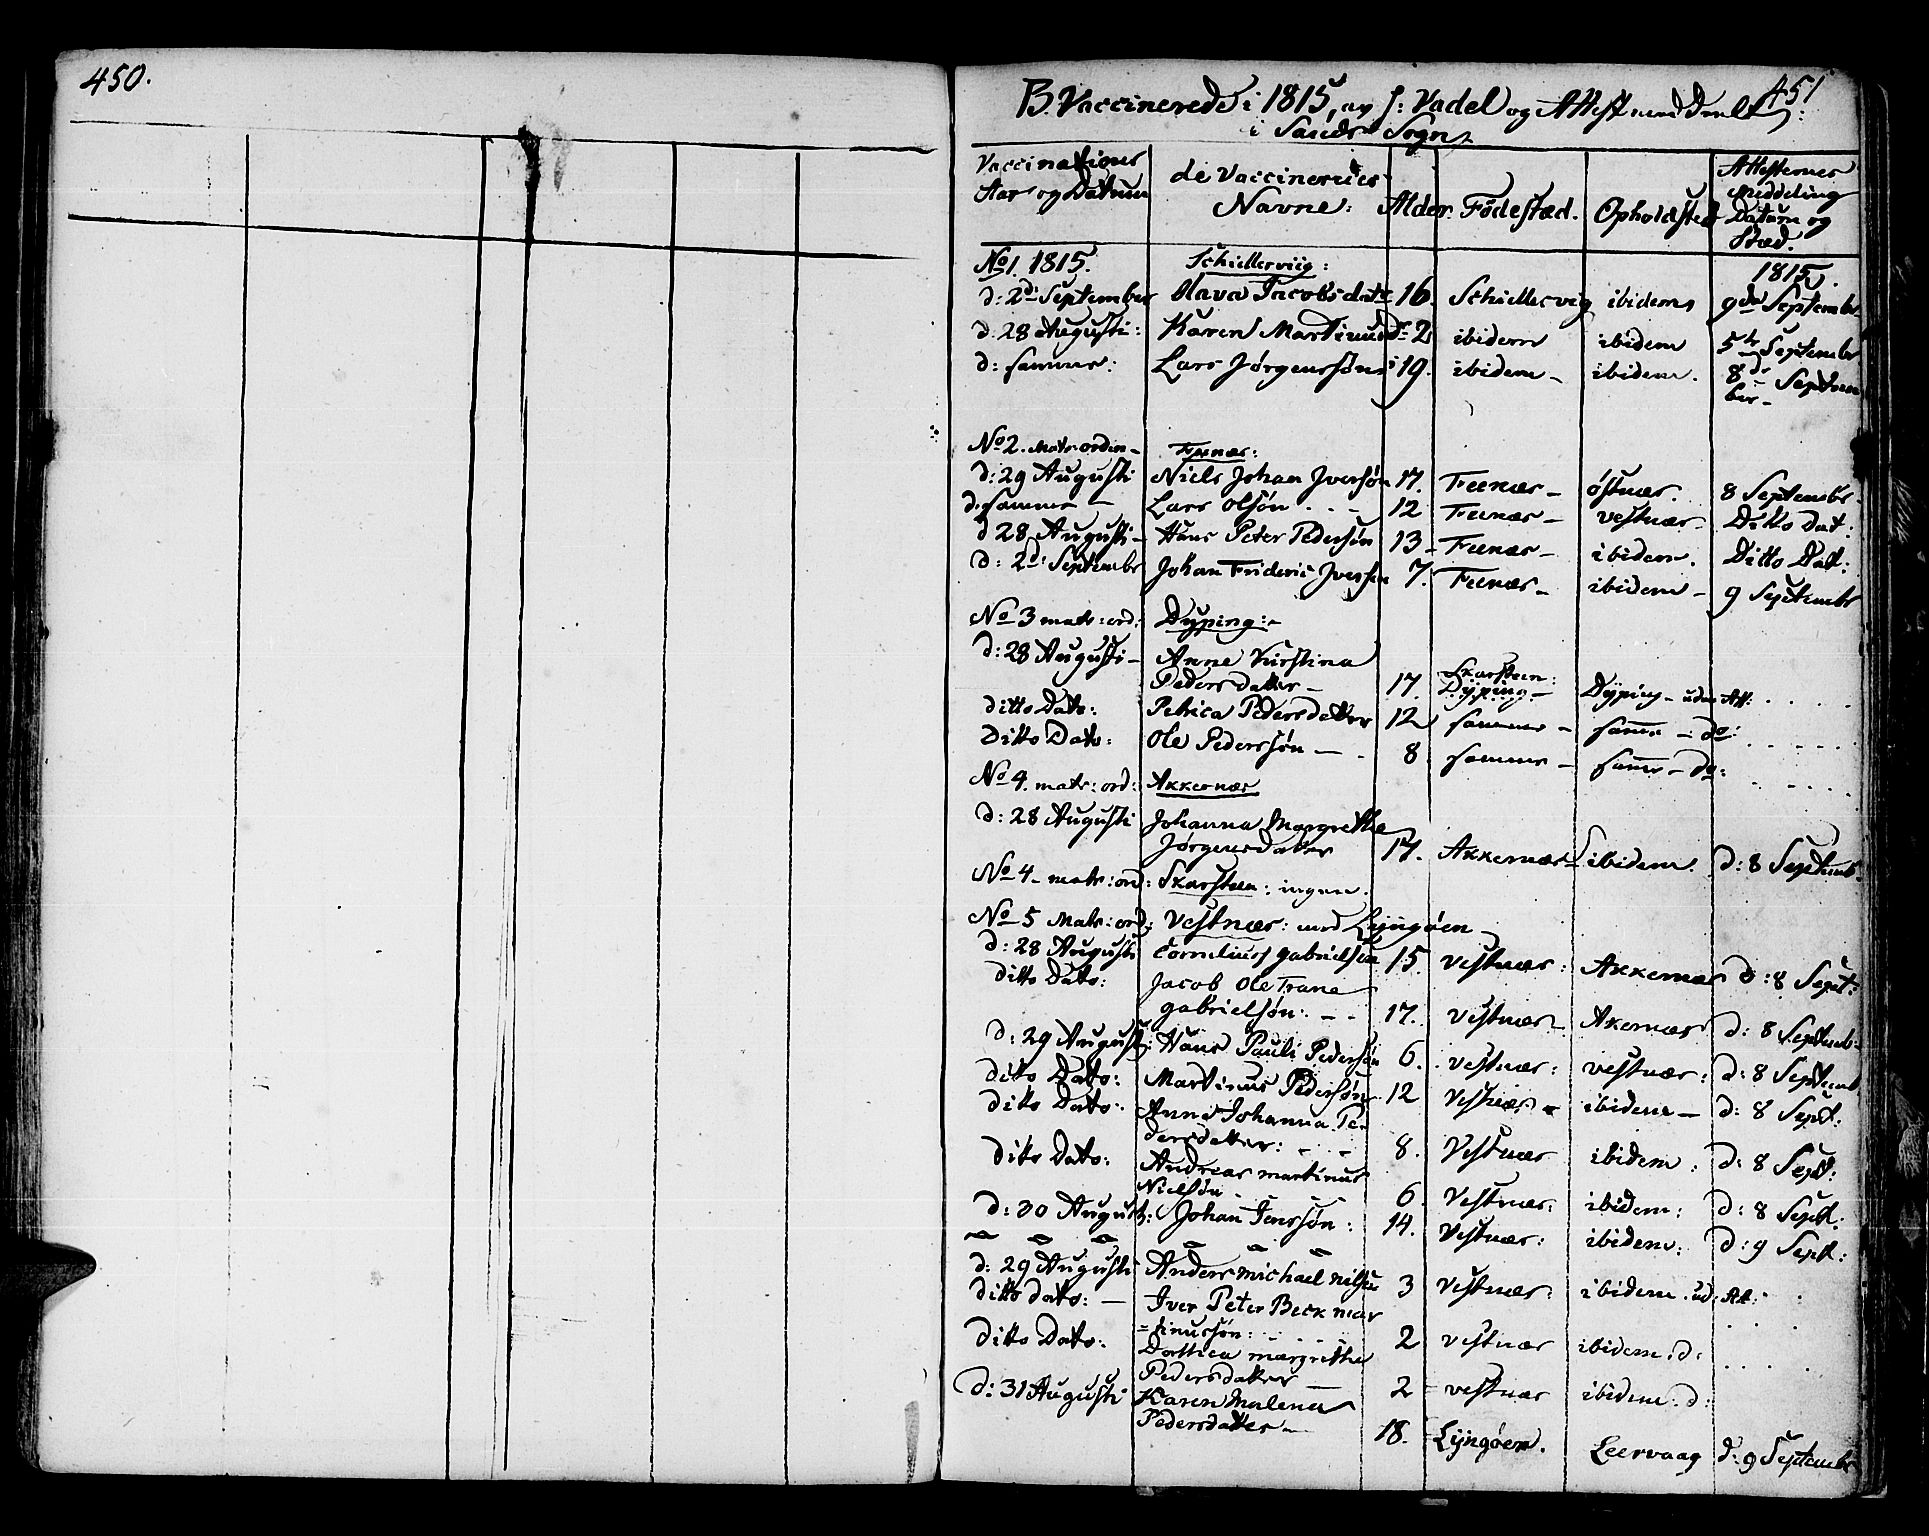 450.
451
B. Vaccinerede i 1815, av J: Vadel og Attest meddeelt
i Sands Sogn
Vaccinations Aar og Datum | de Vaccineredes Navne: | Alder. | Fødestæd. | Opholdsted | Attesternes Meddeling Datum og Stæd.
No 1. 1815. | Schiellerviig: | 1815.
d: 2d: September | Olava Jacobsdatr | 16. | Schiellervig | ibidem | 9de September
d. 28 Augusti: | Karen Martinusd: | 2 | ibidem | ibidem | 5te September
d: samme: | Lars Jørgenssøn | 19. | ibidem - | ibidem. | 8de September -
No 2. Matr ordin - | Feenæs:
d: 29 Augusti | Niels Johan Iversøn | 17. | Feenæs - | østnæs. | 8 Septembr
d: samme - | Lars Olsøn . . - | 12. | Feenæs - | vestnæs - | Ditto Dat:
d 28 Augusti - | Hans Peter Pedersøn | 13 - | Feenæs - | ibidem. | Ditto Dat:
d: 2d: Septembr | Johan Frideric Iversen | 7. | Feenæs - | ibidem - | 9 Septembr
No 3 matr: ord: | Dyping: -
d: 28 Augusti - | Anne Kirstina
Peders datter - | 17. | Skarsteen: Dyping - | Dyping - uden Att: . . . .
ditto Dato: | Petrica Pedersdatter | 12 | samme - | samme - do: . . . . .
Ditto Dato: | Ole Pederssøn - - | 8 | samme - | samme - do: . . . .
No 4. matr: ord: | Akkernæs
d: 28 Augusti | Johanna Margrethe
Jørgensdatter | 17. | Akkernæs - | ibidem. | d: 8 Septemb:
No 4 - matr: ord: | Skarsteen: ingen.
No 5 Matr: ord: | Vestnæs: med Lyngøen -
d: 28 Augusti | Cornelius gabrielsen | 15. | vestnæs: | Akkernæs | d: 8 Sept:
ditto Dato: | Jacob Ole Trane
gabrielsøn: - - | 17. | vestnæs - | Akernæs | d: 8 Septemb -
d: 29 Augusti: | Hans Pauli Pedersøn | 6. | vestnæs: | vestnæs: | d: 8 Septemb
ditto Dato: | Martinus Pedersøn | 12 | Vestnæs - | ibidem - | d: 8 Sept:
ditto Dato: | Anne Johanna Pe
dersdatter: - - | 8. | Vestnæs | ibidem: | d: 8 Sept:
ditto Dato: | Andreas martinus
Nielsøn - | 6. | Vestnæs: | ibidem: | d: 8 Sept:
d: 30 August: | Johan Jenssøn: | 14. | Vestnæs: | ibidem: | d: 9 Sept:
d: 29 Augusti | Anders michael nilsen | 3 | Vestnæs: | ibidem. ud: Att: . .
ditto dato: - | Iver Peter Beck mar
=tinussøn: . . . . | 2 | vestnæs | ibidem: d: . . .
Ditto Dato: | Dorthea margrethe
Pedersdatter - | 2 | vestnæs | ibidem: d: . . . .
d: 31 Augusti | Karen Malena
Pedersdatter - | 18. | Lyngøen. | Leervaag | d: 9 Septembr